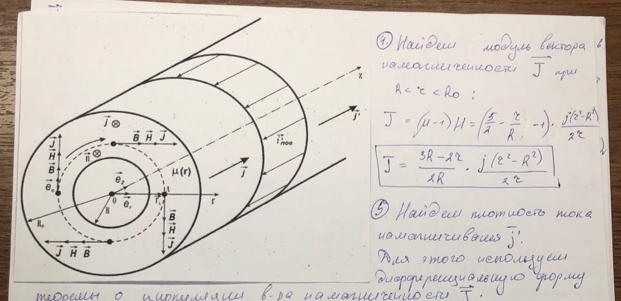 ④ Найдем модуль вектора
намагниченности J⃗ при
R < r < R₀ :
J = (μ-1)H = (5/2 - r/R - 1) · j(r²-R²)/2r
J = (3R-2r)/2R · j(r²-R²)/2r
⑤ Найдем плотность тока
намагничивания j⃗'
Для этого используем
дифференциальную форму
теоремы о циркуляции в-ра намагниченности J⃗
J⃗ ⊗
B⃗ H⃗ J⃗
μ(r)
i⃗'пов
j⃗'
z
R₀
R
0
r